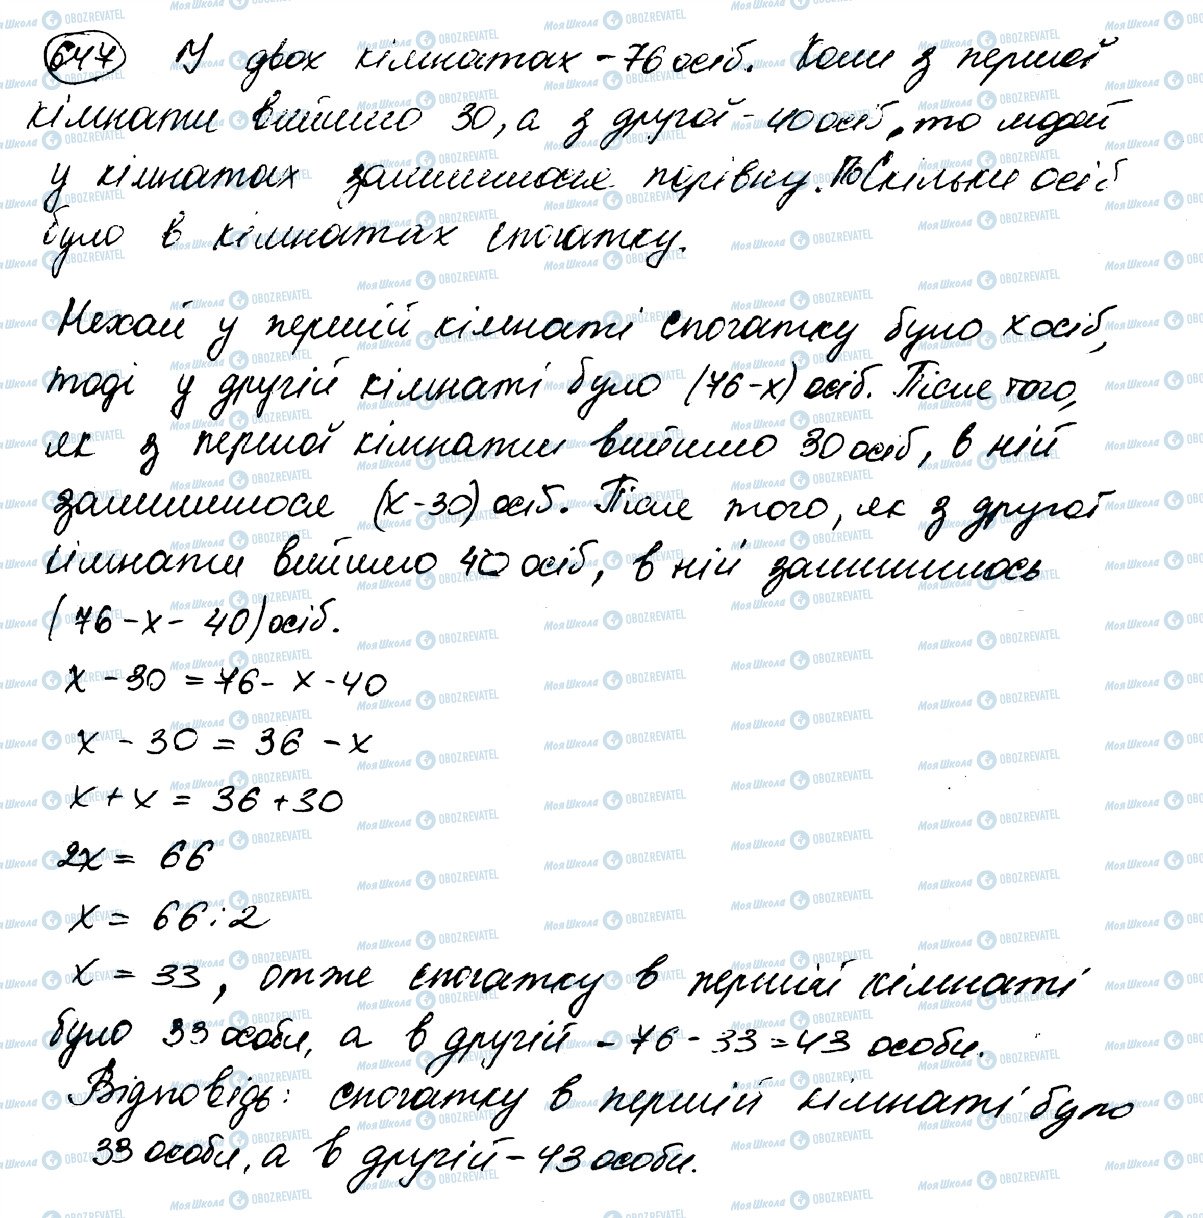 647 У двох кімнатах - 76 осіб. Коли з першої
кімнати вийшло 30, а з другої - 40 осіб, то людей
у кімнатах залишилося порівну. По скільки осіб
було в кімнатах спочатку.
Нехай у першій кімнаті спочатку було x осіб,
тоді у другій кімнаті було (76-x) осіб. Після того,
як з першої кімнати вийшло 30 осіб, в ній
залишилося (x-30) осіб. Після того, як з другої
кімнати вийшло 40 осіб, в ній залишилось
(76-x-40) осіб.
x - 30 = 76 - x - 40
x - 30 = 36 - x
x + x = 36 + 30
2x = 66
x = 66 : 2
x = 33, отже спочатку в першій кімнаті
було 33 особи, а в другій - 76 - 33 = 43 особи.
Відповідь: спочатку в першій кімнаті було
33 особи, а в другій - 43 особи.